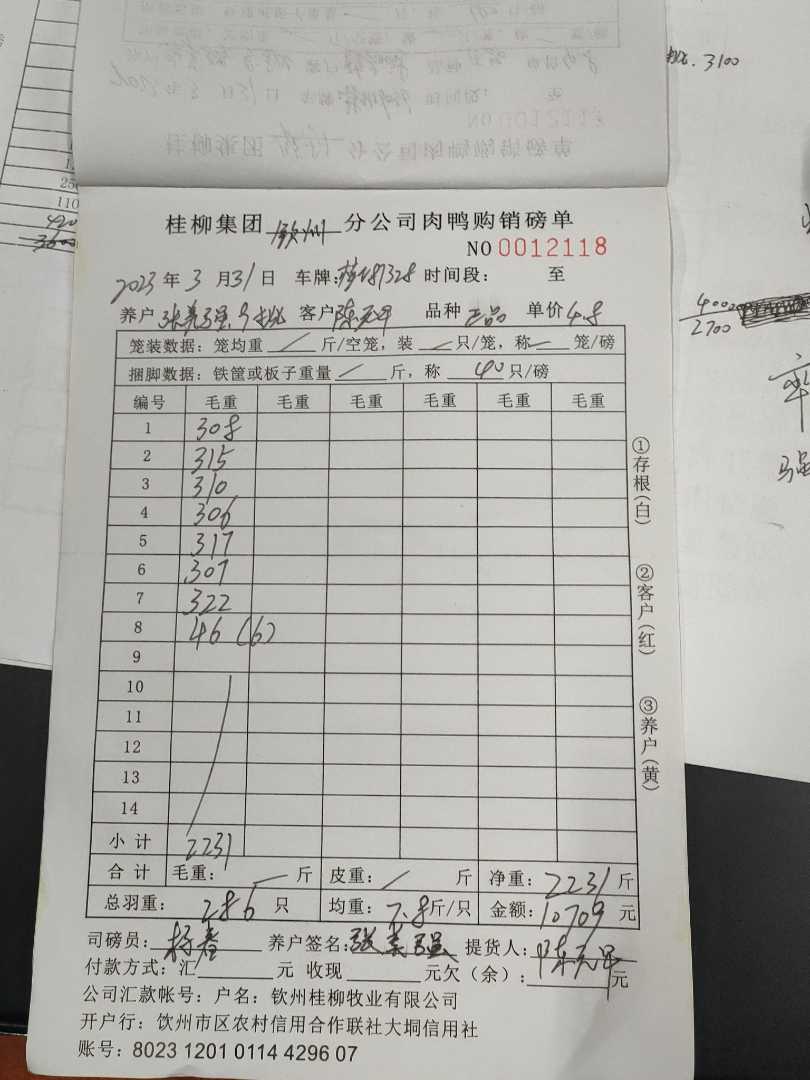 3100
250
110
420
3600
4000
2700
桂柳集团 钦州 分公司肉鸭购销磅单
NO 0012118
2023 年 3 月 31 日 车牌: 87328 时间段: 至
养户 客户 陈元甲 品种 正品 单价 4.8
笼装数据: 笼均重 / 斤/空笼, 装 / 只/笼, 称 — 笼/磅
捆脚数据: 铁筐或板子重量 / 斤, 称 40 只/磅
编号 毛重 毛重 毛重 毛重 毛重 毛重
1 308
2 315
3 310
4 306
5 317
6 307
7 322
8 46 (6)
9
10
11
12
13
14
小计 2231
合计 毛重: — 斤 皮重: / 斤 净重: 2231 斤
总羽重: 286 只 均重: 7.8 斤/只 金额: 10709 元
司磅员: 杨春 养户签名: 张美强 提货人: 陈元甲
付款方式: 汇 元 收现 元欠(余): 元
公司汇款帐号: 户名: 钦州桂柳牧业有限公司
开户行: 钦州市区农村信用合作联社大垌信用社
账号: 8023 1201 0114 4296 07
①存根(白)
②客户(红)
③养户(黄)